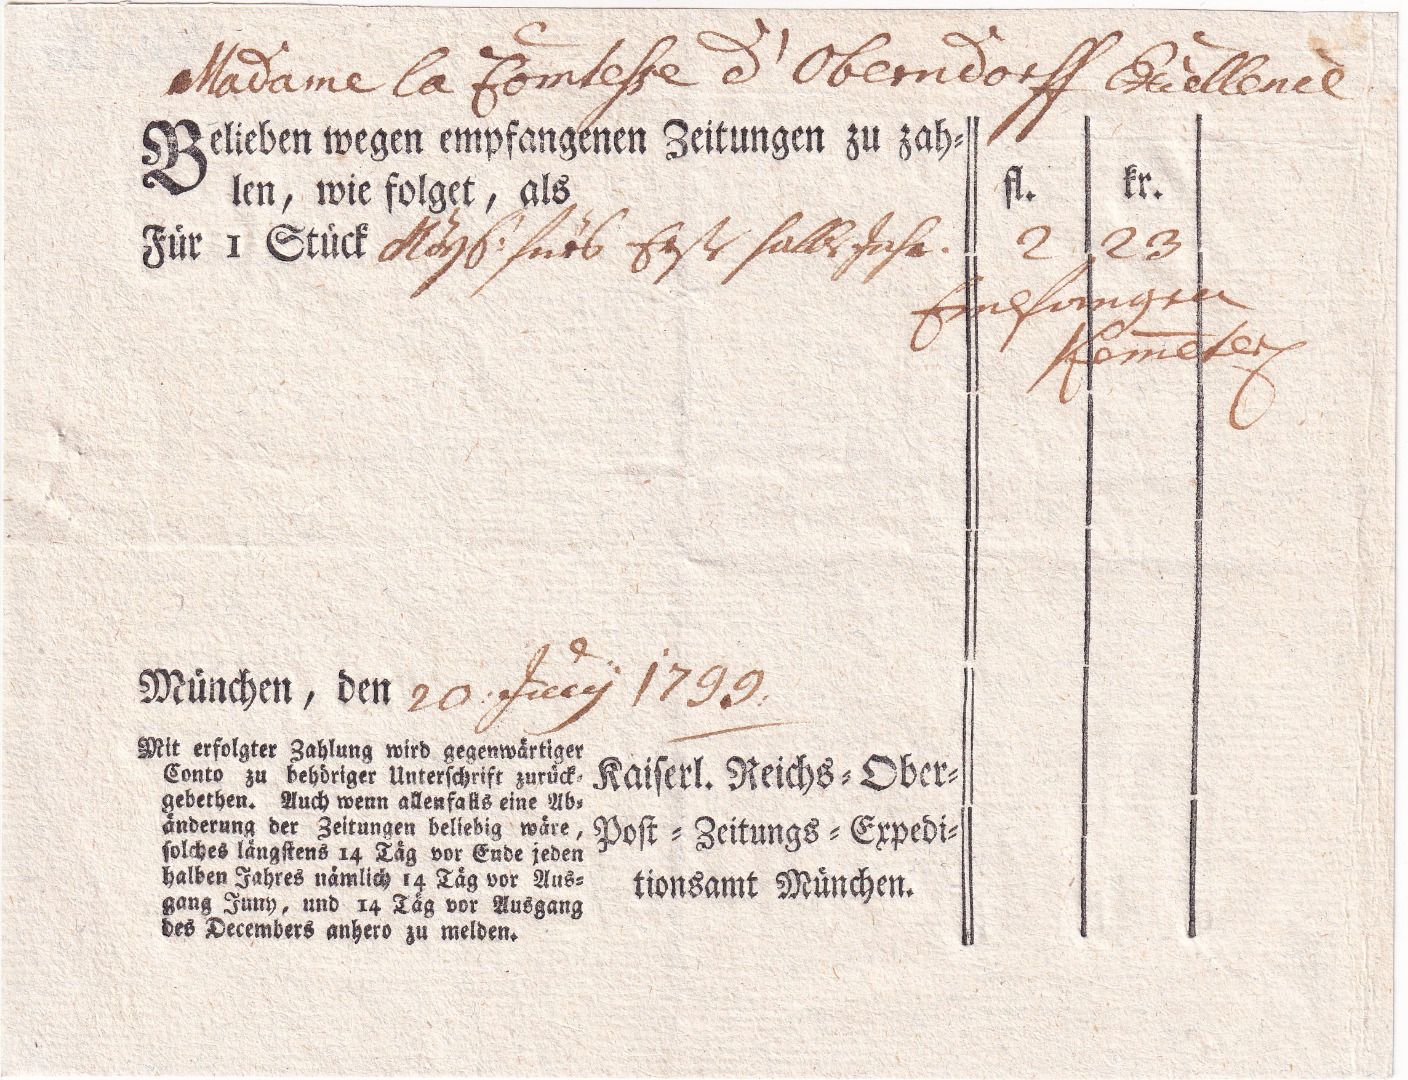 Madame la Comtesse d'Oberndorff Excellence
Belieben wegen empfangenen Zeitungen zu zah-
len, wie folget, als
fl. kr.
Für 1 Stück fürs Erste halbe Jahr. 2 23
Empfangen
Kemeter
München, den 20. Juny 1799.
Mit erfolgter Zahlung wird gegenwärtiger
Conto zu behöriger Unterschrift zurück-
gebethen. Auch wenn allenfalls eine Ab-
änderung der Zeitungen beliebig wäre,
solches längstens 14 Täg vor Ende jeden
halben Jahres nämlich 14 Täg vor Aus-
gang Juny, und 14 Täg vor Ausgang
des Decembers anhero zu melden.
Kaiserl. Reichs-Ober-
Post-Zeitungs-Expedi-
tionsamt München.